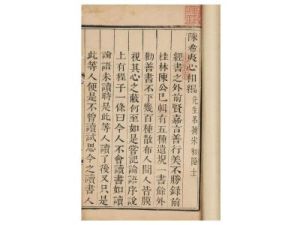 陳希夷心相編
經書之外前賢嘉言善行美不勝錄前
桂林陳公已輯有五種遺規一書餘外
勸善書不下幾百種散布人間昔
視其心之蔽何至如是嘗記論語序說
上有程子一條曰今人不會讀書如讀
論語未讀時是此等人讀了後又只是
此等人便是不曾讀試思今之讀書人